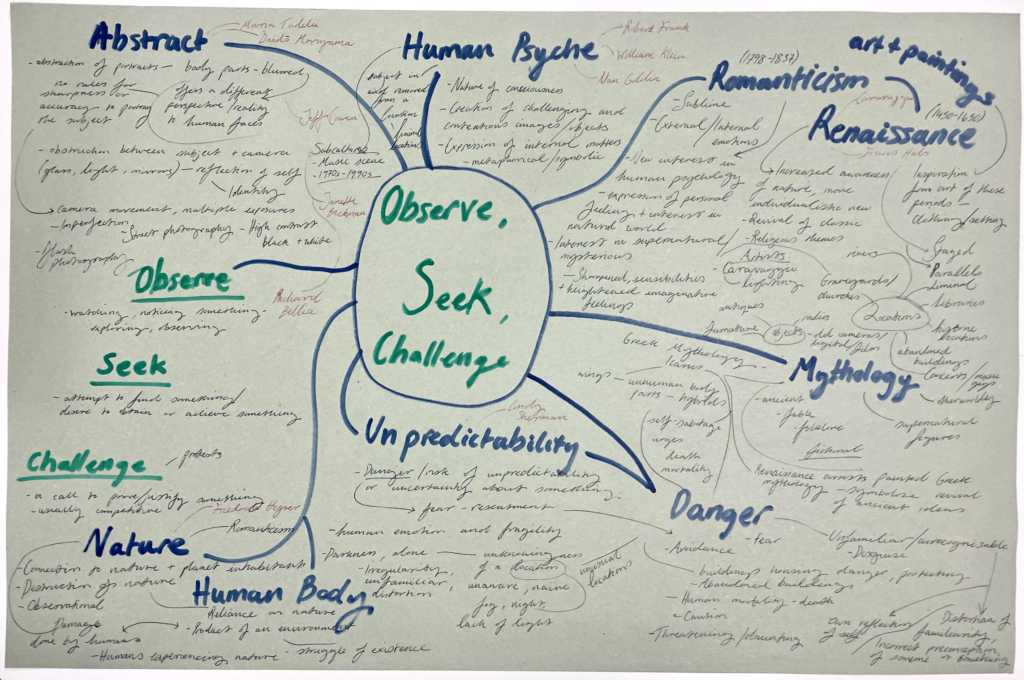 Observe,
Seek,
Challenge
Abstract
Maria Tudela
Daido Moriyama
- abstraction of portraits — body parts - blurred
no rules for
sharpness or
accuracy to portray
the subject
offers a different
perspective/reality
to human faces
- obstruction between subject + camera
(glass, light, mirrors) — reflection of self
Identity
- camera movement, multiple exposures
- Imperfection
- Street photography - High contrast
black + white
- flash
photography
Human Psyche
Robert Frank
William Klein
Nan Goldin
subject in/
removed
from a
location
- Nature of consciousness
- Creation of challenging and
contentious images/objects
- Expression of internal matters
- metaphorical/symbolic
Subcultures
- Music scene
- 1970s-1990s
Janette
Beckman
Richard
Billie
(1798-1837)
Romanticism
- Sublime
- External/Internal
emotions
- New interest in
human psychology
- expression of personal
feeling + interest in
natural world
- Interest in supernatural/
mysterious
- Sharpened sensibilities
+ heightened imaginative
feelings
art + paintings
Caravaggio
(1450-1650)
Renaissance
Frans Hals
- Increased awareness
of nature, more
individualistic view
- Revival of classic
- Religious themes
Artists
- Caravaggio
lighting
Inspiration
from art of these
periods -
clothing/setting
Staged
Parallels
Liminal
libraries
Locations
rivers
Graveyards/
churches
abandoned
buildings
Concerts/music
gigs
antiques
radios
furnature
objects
old cameras/
digital/film
Mythology
Greek Mythology
Icarus
wings — unhuman body
parts - hybrids
self-sabotage
urges
death
mortality
- ancient
- fable
- folklore
fictional
otherworldly
supernatural
figures
Renaissance artists painted Greek
mythology - symbolise revival
of ancient ideas
Observe
- watching, noticing something -
exploring, observing
Seek
- attempt to find something/
desire to obtain or achieve something
Challenge
protests
- a call to prove/justify something
- usually competitive
Unpredictability
Cindy
Sherman
- Danger/risk of unpredictability
or uncertainty about something.
fear - resentment
- human emotion and fragility
- Darkness, alone
- Irregularity,
unfamiliar
distortion,
unknowingness
of a location
unaware, naive
fog, night
lack of light
unusual
locations
Danger
- Avoidance
- fear
- Unfamiliar/unrecognisable
- Disguise
buildings housing danger, protecting
- Abandoned buildings
- Human mortality - death
- Caution
- Threatening/daunting
own reflection
of self
Distortion of
familiarity,
Incorrect preconception
of someone or something
Nature
Romanticism
- Connection to nature + planet inhabitants
- Distruction of nature
- Observational
Damage
done by humans
Human Body
- Reliance on nature
- Product of an environment
- Humans experiencing nature - struggle of existence